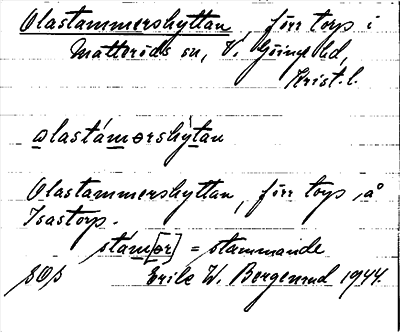 Olastammershyttan, förr torp i
Matteröds sn, V. Göinge hd,
Krist. l.
olastámərshỳtan
Olastammershyttan, förr torp, å
Isastorp.
stám[ər] = stammande
SOS Erik W. Borgenrud 1944.